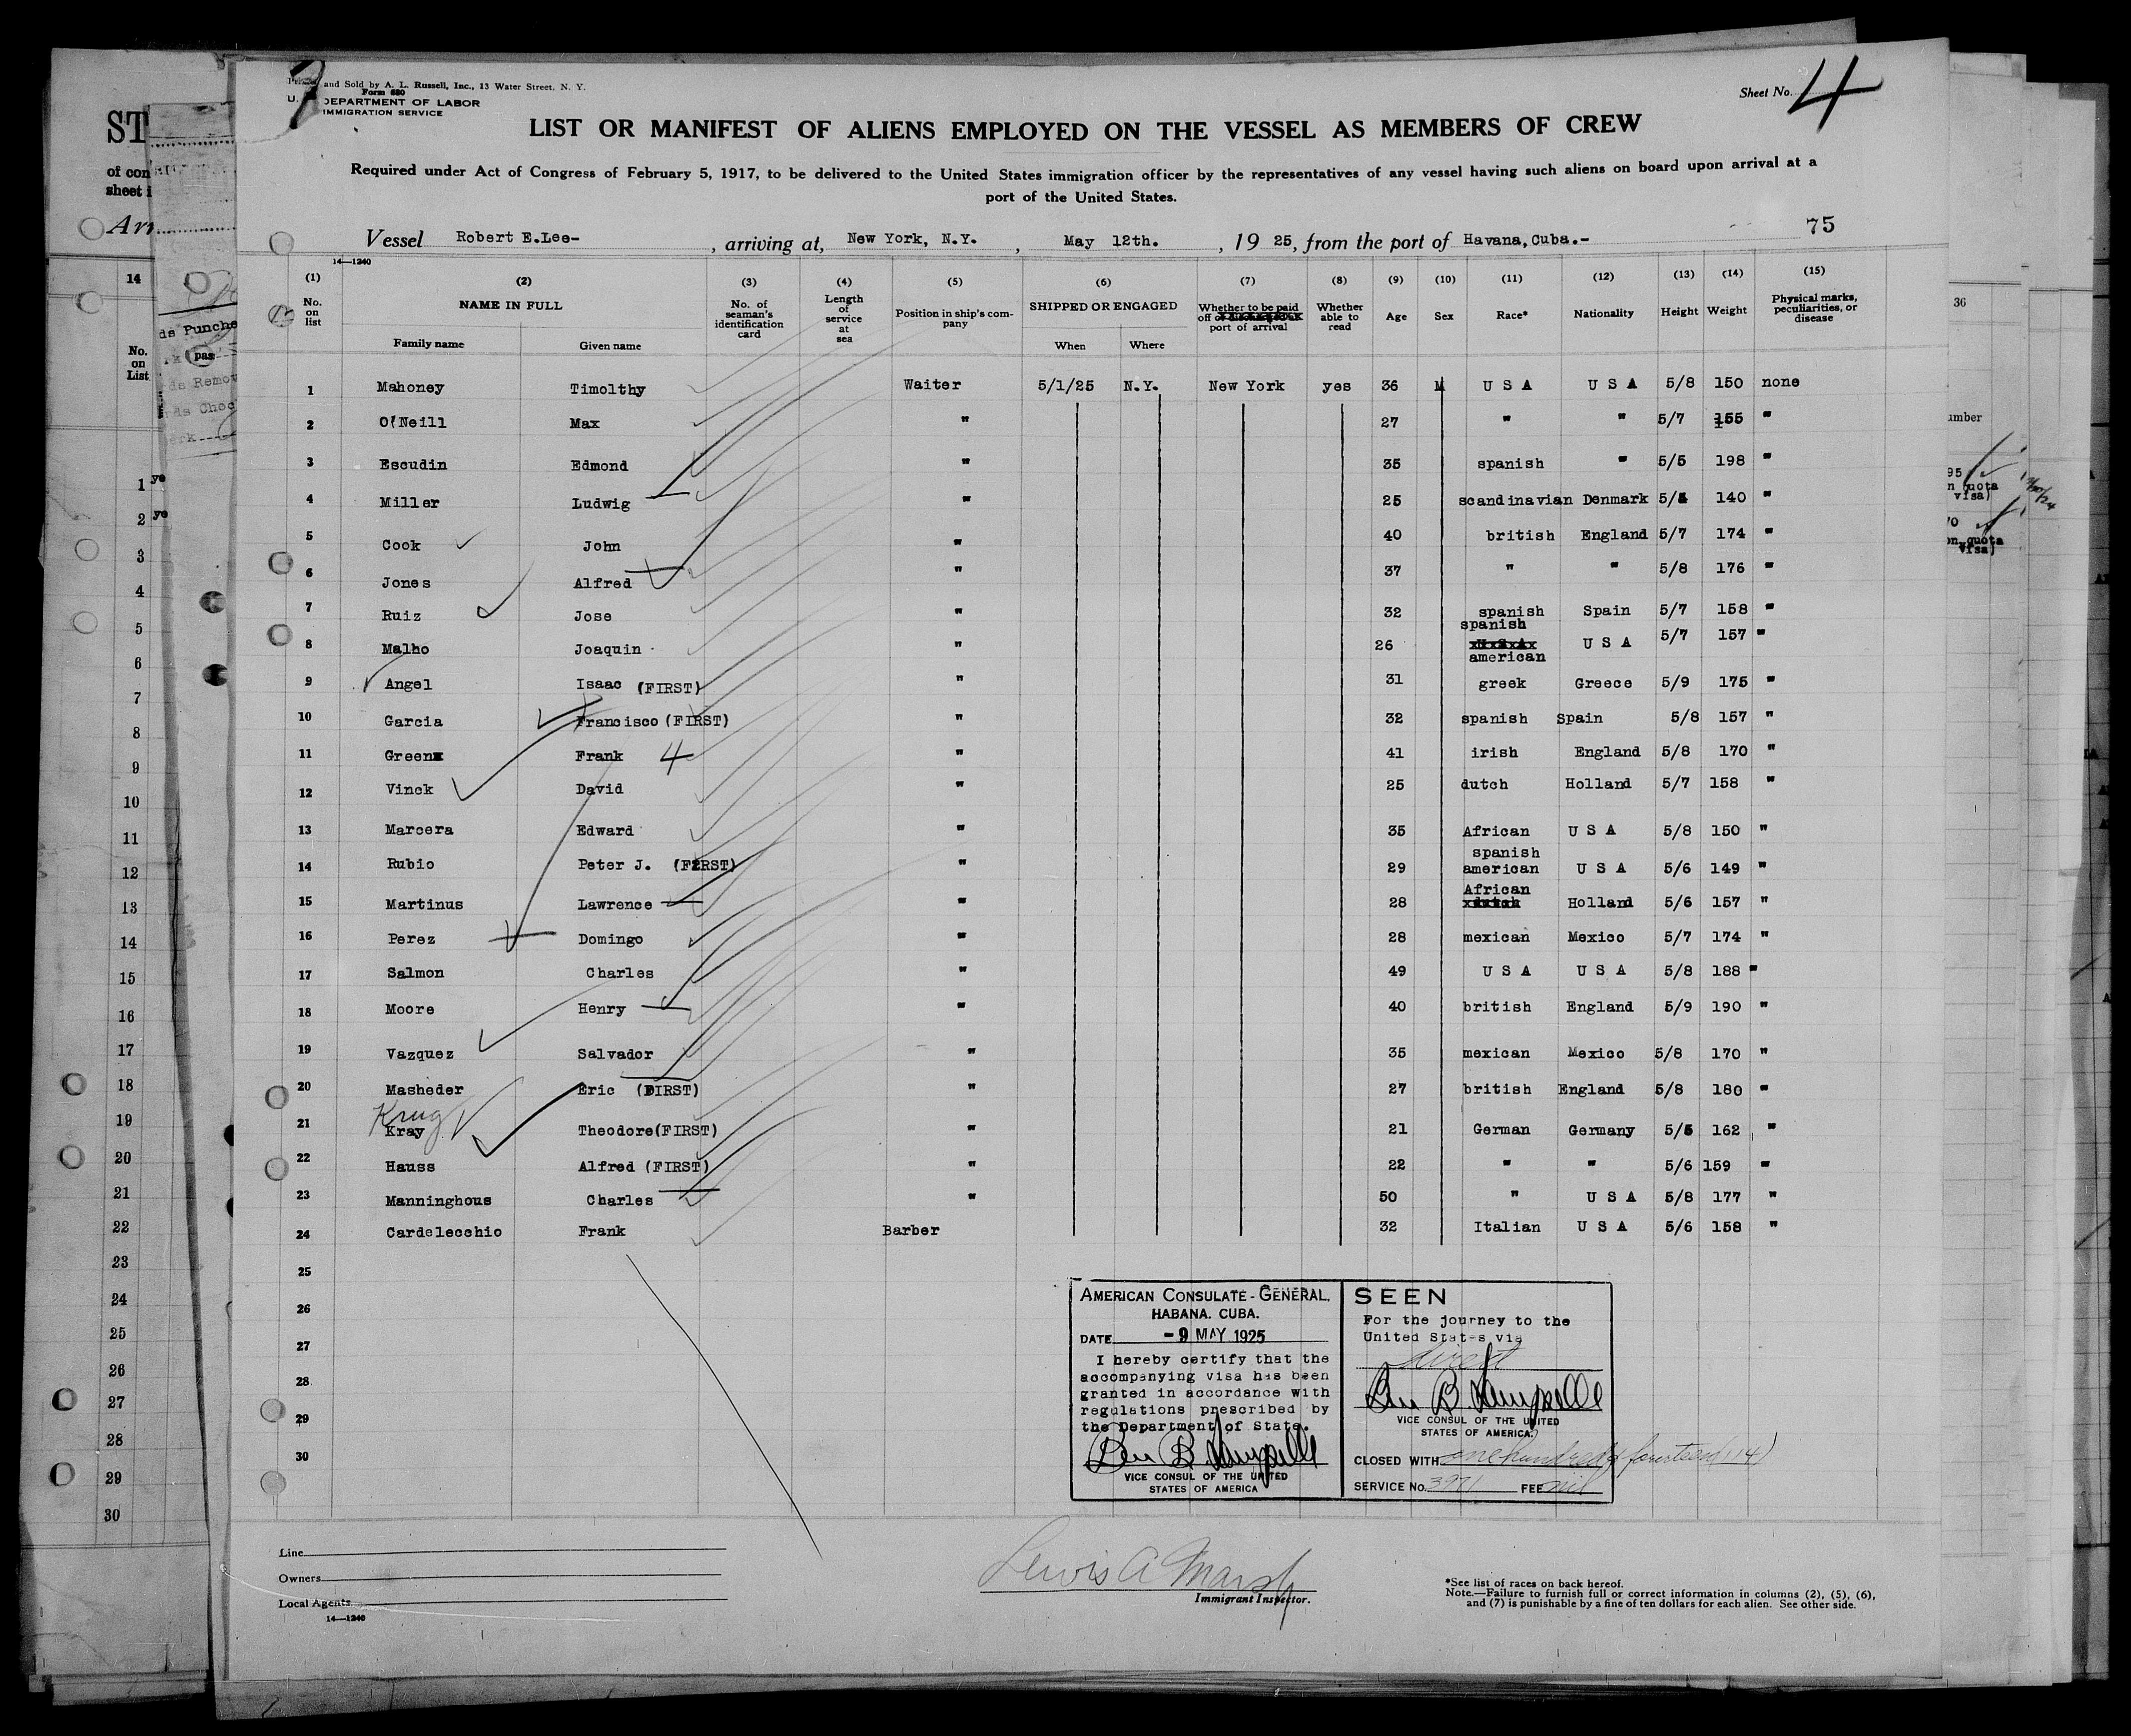 and Sold by A. L. Russell, Inc., 13 Water Street, N. Y.
Form 680
U. DEPARTMENT OF LABOR
IMMIGRATION SERVICE
Sheet No. 4
LIST OR MANIFEST OF ALIENS EMPLOYED ON THE VESSEL AS MEMBERS OF CREW
Required under Act of Congress of February 5, 1917, to be delivered to the United States immigration officer by the representatives of any vessel having such aliens on board upon arrival at a
port of the United States.
75
Vessel Robert E.Lee- , arriving at, New York, N.Y. , May 12th. , 19 25, from the port of Havana, Cuba.-
14—1240
(1) (2) (3) (4) (5) (6) (7) (8) (9) (10) (11) (12) (13) (14) (15)
No. on list NAME IN FULL Family name Given name No. of seaman's identification card Length of service at sea Position in ship's company SHIPPED OR ENGAGED When Where Whether to be paid off port of arrival Whether able to read Age Sex Race* Nationality Height Weight Physical marks, peculiarities, or disease
1 Mahoney Timolthy Waiter 5/1/25 N.Y. New York yes 36 M U S A U S A 5/8 150 none
2 O'Neill Max " 27 " " 5/7 155 "
3 Escudin Edmond " 35 spanish " 5/5 198 "
4 Miller Ludwig " 25 scandinavian Denmark 5/ 140 "
5 Cook John " 40 british England 5/7 174 "
6 Jones Alfred " 37 " " 5/8 176 "
7 Ruiz Jose " 32 spanish Spain 5/7 158 "
8 Malho Joaquin " 26 spanish american U S A 5/7 157 "
9 Angel Isaac (FIRST) " 31 greek Greece 5/9 175 "
10 Garcia Francisco (FIRST) " 32 spanish Spain 5/8 157 "
11 Green Frank 4 " 41 irish England 5/8 170 "
12 Vinck David " 25 dutch Holland 5/7 158 "
13 Marcera Edward " 35 African U S A 5/8 150 "
14 Rubio Peter J. (FIRST) " 29 spanish american U S A 5/6 149 "
15 Martinus Lawrence " 28 African Holland 5/6 157 "
16 Perez Domingo " 28 mexican Mexico 5/7 174 "
17 Salmon Charles " 49 U S A U S A 5/8 188 "
18 Moore Henry " 40 british England 5/9 190 "
19 Vazquez Salvador " 35 mexican Mexico 5/8 170 "
20 Masheder Eric (FIRST) " 27 british England 5/8 180 "
Krug
21 Kray Theodore(FIRST) " 21 German Germany 5/5 162 "
22 Hauss Alfred (FIRST) " 22 " " 5/6 159 "
23 Manninghous Charles " 50 " U S A 5/8 177 "
24 Cardelecchio Frank Barber 32 Italian U S A 5/6 158 "
25
26
27
28
29
30
AMERICAN CONSULATE-GENERAL.
HABANA. CUBA.
DATE -9 MAY 1925
I hereby certify that the
accompanying visa has been
granted in accordance with
regulations prescribed by
the Department of State.
VICE CONSUL OF THE UNITED
STATES OF AMERICA
SEEN
For the journey to the
United States via
direct
VICE CONSUL OF THE UNITED
STATES OF AMERICA
CLOSED WITH one hundred & fourteen (114)
SERVICE No. 3971 FEE nil
Line
Owners
Local Agents
14—1240
Lewis A Marsh
Immigrant Inspector.
*See list of races on back hereof.
Note.—Failure to furnish full or correct information in columns (2), (5), (6),
and (7) is punishable by a fine of ten dollars for each alien. See other side.
ST
of con
sheet i
Arr
14
No.
on
List
ds Punche
pas
ds Remov
rds Chec
erk
1 ye
2 ye
3
4
5
6
7
8
9
10
11
12
13
14
15
16
17
18
19
20
21
22
23
24
25
26
27
28
29
30
36
umber
95
n quota
visa)
70
on quota
visa)